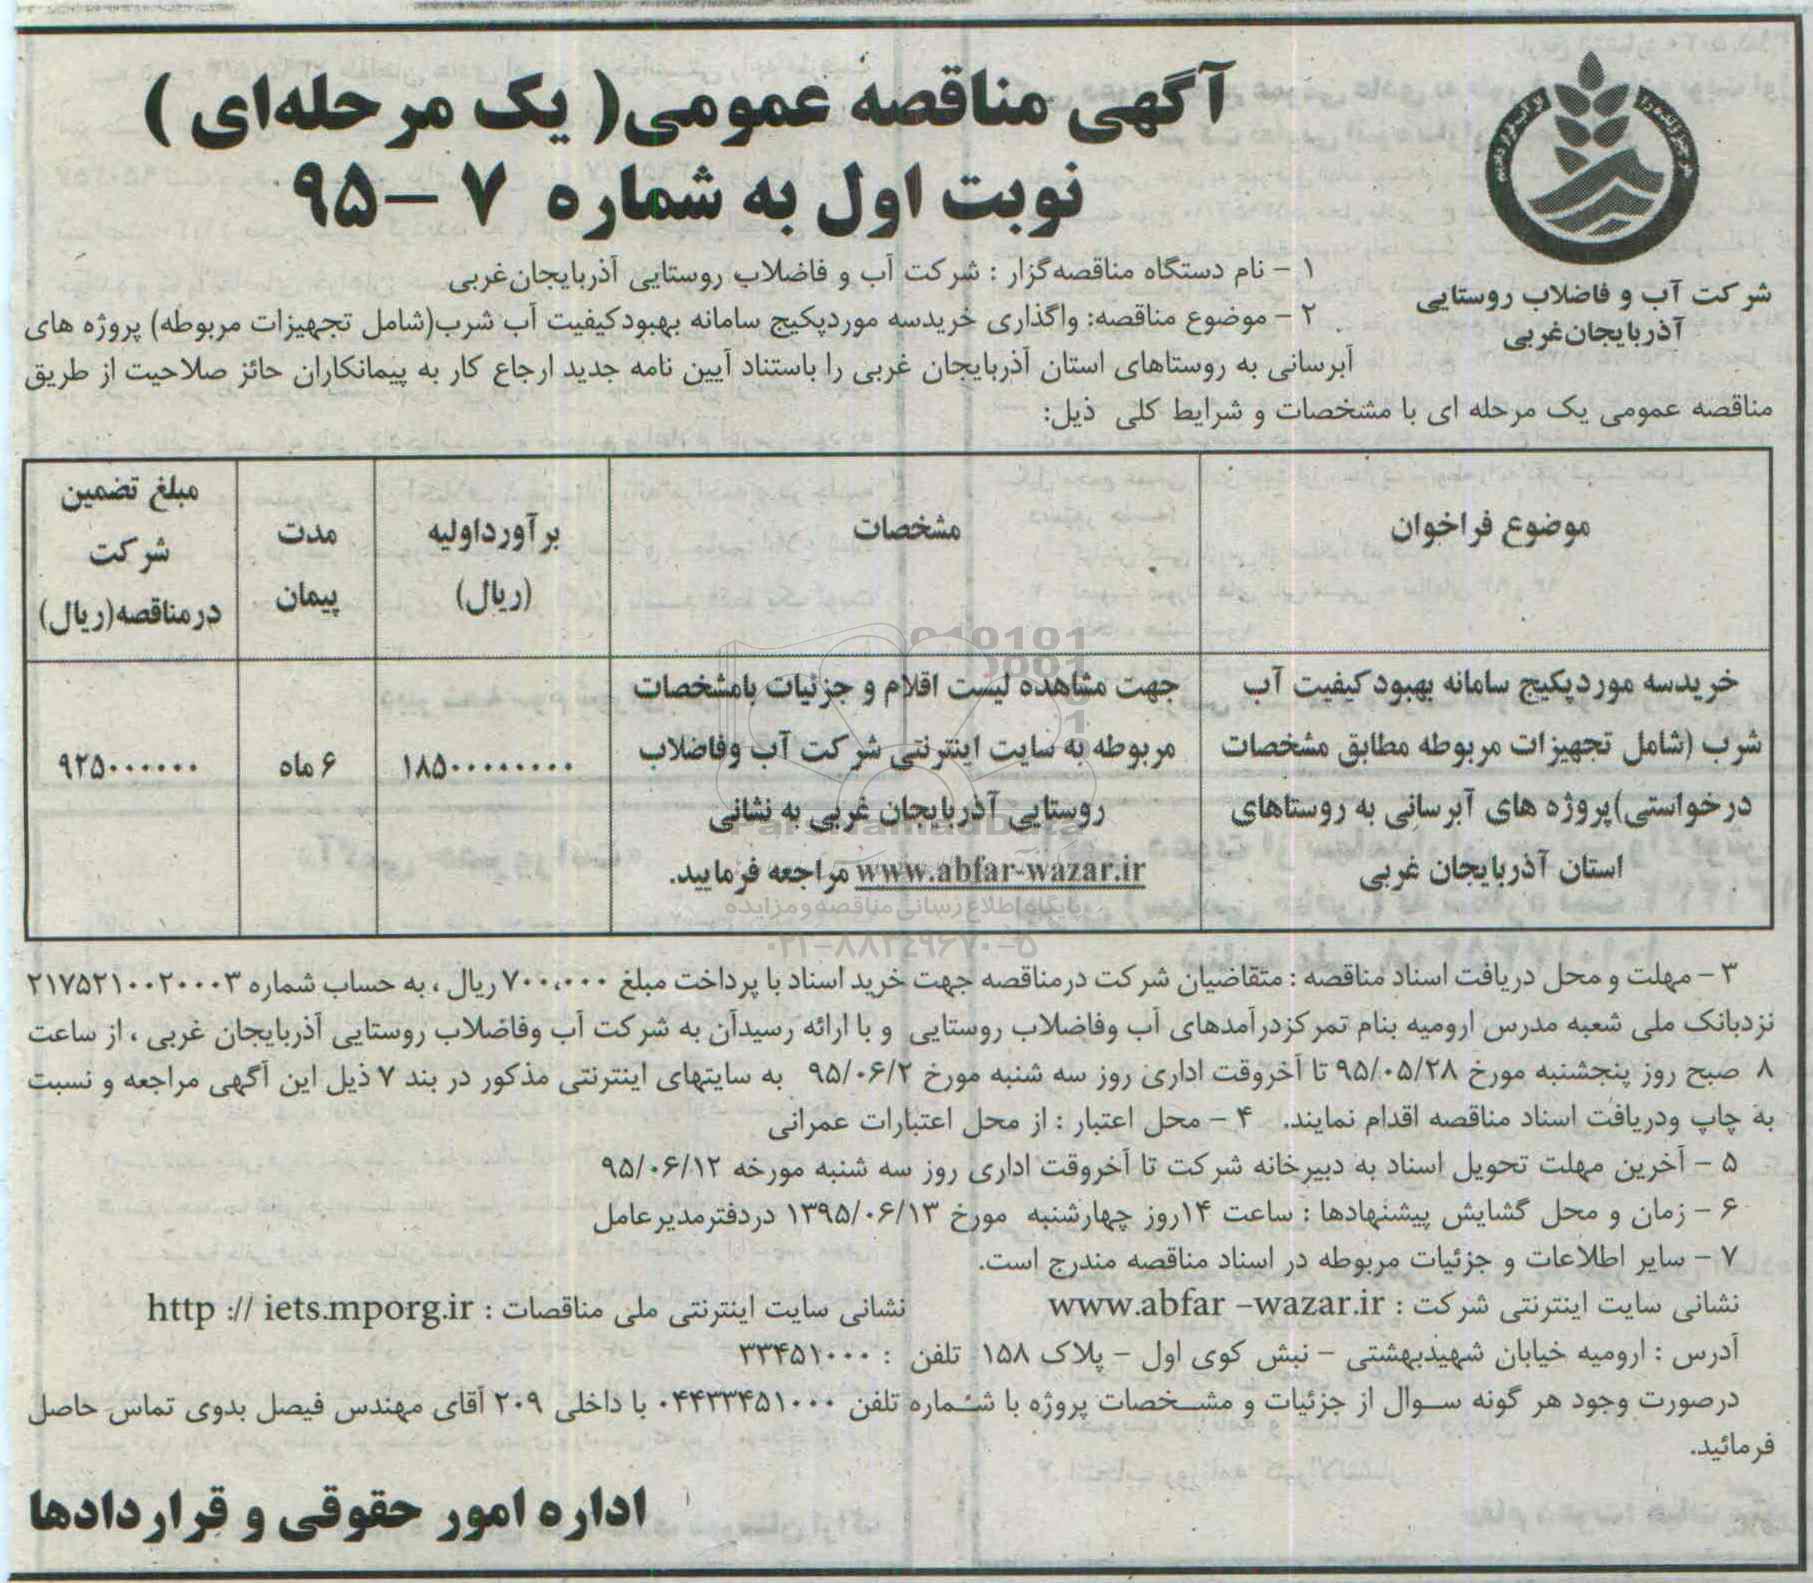 آگهی مناقصه عمومی( یک مرحله‌ای )
نوبت اول به شماره ۷ -۹۵
شرکت آب و فاضلاب روستایی
آذربایجان‌غربی
۱ - نام دستگاه مناقصه‌گزار : شرکت آب و فاضلاب روستایی آذربایجان‌غربی
۲ - موضوع مناقصه: واگذاری خریدسه موردپکیج سامانه بهبودکیفیت آب شرب(شامل تجهیزات مربوطه) پروژه های
آبرسانی به روستاهای استان آذربایجان غربی را باستناد آیین نامه جدید ارجاع کار به پیمانکاران حائز صلاحیت از طریق
مناقصه عمومی یک مرحله ای با مشخصات و شرایط کلی ذیل:
موضوع فراخوان
مشخصات
برآورداولیه
(ریال)
مدت
پیمان
مبلغ تضمین
شرکت
درمناقصه(ریال)
خریدسه موردپکیج سامانه بهبودکیفیت آب
شرب (شامل تجهیزات مربوطه مطابق مشخصات
درخواستی)پروژه های آبرسانی به روستاهای
استان آذربایجان غربی
جهت مشاهده لیست اقلام و جزئیات بامشخصات
مربوطه به سایت اینترنتی شرکت آب وفاضلاب
روستایی آذربایجان غربی به نشانی
www.abfar-wazar.ir مراجعه فرمایید.
۱۸۵۰۰۰۰۰۰۰۰۰
۶ ماه
۹۲۵۰۰۰۰۰۰
پایگاه اطلاع رسانی مناقصه و مزایده
۰۲۱-۸۸۳۴۹۶۷۰-۵
۳ - مهلت و محل دریافت اسناد مناقصه : متقاضیان شرکت درمناقصه جهت خرید اسناد با پرداخت مبلغ ۷۰۰،۰۰۰ ریال ، به حساب شماره ۲۱۷۵۲۱۰۰۲۰۰۰۳
نزدبانک ملی شعبه مدرس ارومیه بنام تمرکزدرآمدهای آب وفاضلاب روستایی و با ارائه رسیدآن به شرکت آب وفاضلاب روستایی آذربایجان غربی ، از ساعت
۸ صبح روز پنجشنبه مورخ ۹۵/۰۵/۲۸ تا آخروقت اداری روز سه شنبه مورخ ۹۵/۰۶/۲ به سایتهای اینترنتی مذکور در بند ۷ ذیل این آگهی مراجعه و نسبت
به چاپ ودریافت اسناد مناقصه اقدام نمایند. ۴ - محل اعتبار : از محل اعتبارات عمرانی
۵ - آخرین مهلت تحویل اسناد به دبیرخانه شرکت تا آخروقت اداری روز سه شنبه مورخه ۹۵/۰۶/۱۲
۶ - زمان و محل گشایش پیشنهادها : ساعت ۱۴روز چهارشنبه مورخ ۱۳۹۵/۰۶/۱۳ دردفترمدیرعامل
۷ - سایر اطلاعات و جزئیات مربوطه در اسناد مناقصه مندرج است.
نشانی سایت اینترنتی شرکت : www.abfar -wazar.ir نشانی سایت اینترنتی ملی مناقصات : http :// iets.mporg.ir
آدرس : ارومیه خیابان شهیدبهشتی - نبش کوی اول - پلاک ۱۵۸ تلفن : ۳۳۴۵۱۰۰۰
درصورت وجود هر گونه سوال از جزئیات و مشخصات پروژه با شماره تلفن ۰۴۴۳۳۴۵۱۰۰۰ با داخلی ۲۰۹ آقای مهندس فیصل بدوی تماس حاصل
فرمائید.
اداره امور حقوقی و قراردادها